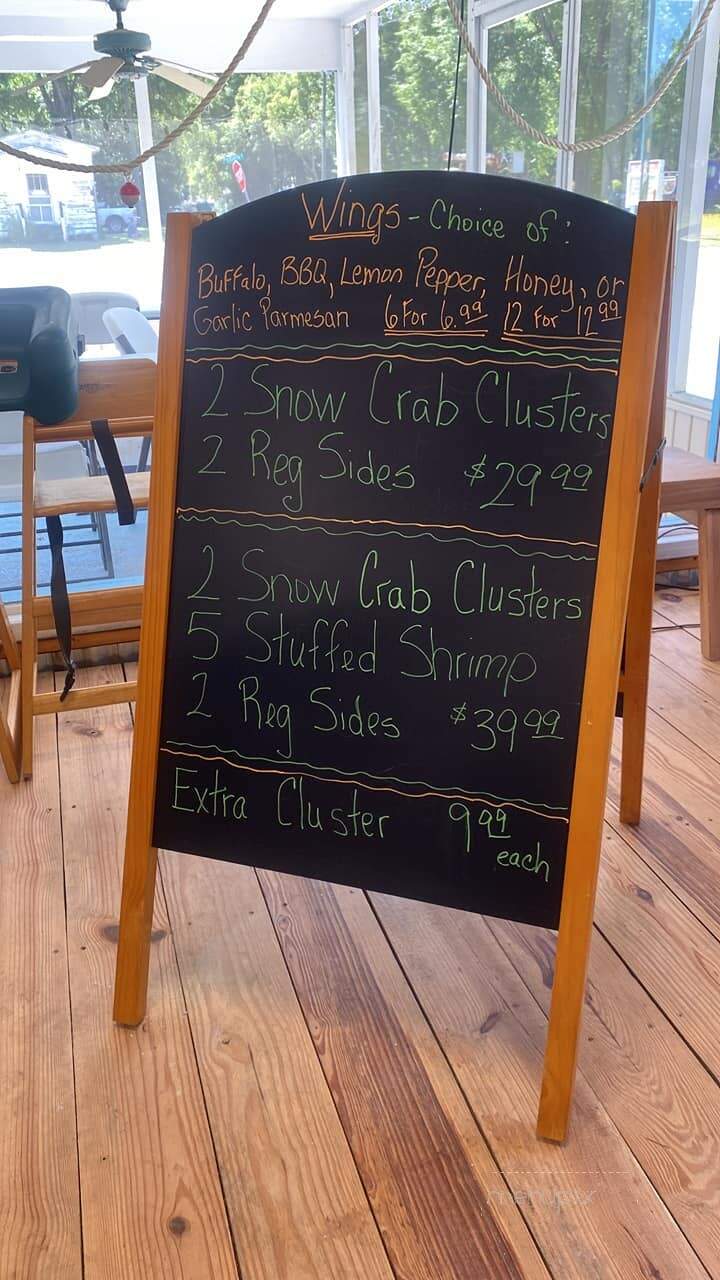 Wings - Choice of:
Buffalo, BBQ, Lemon Pepper, Honey, or
Garlic Parmesan 6 For 6.99 12 For 12 99
2 Snow Crab Clusters
2 Reg Sides $29 99
2 Snow Crab Clusters
5 Stuffed Shrimp
2 Reg Sides $39 99
Extra Cluster 9 99
each
menupix